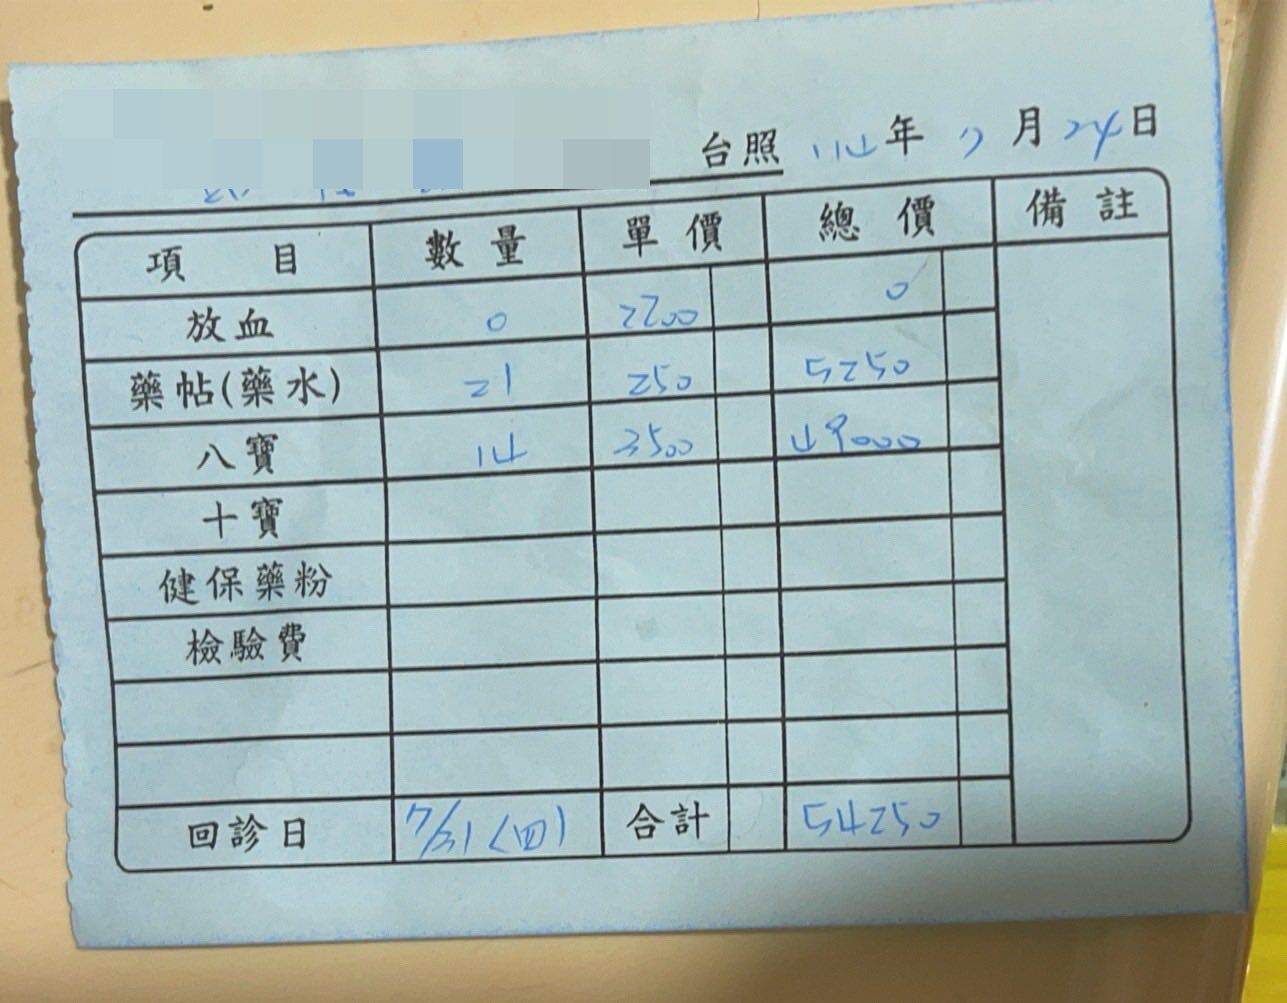 台照 114年 7月 24日
項目 數量 單價 總價 備註
放血 0 2200 0
藥帖(藥水) 21 250 5250
八寶 14 3500 49000
十寶
健保藥粉
檢驗費
回診日 7/31(四) 合計 54250